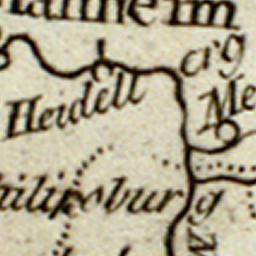 anheim
Heidell
erg
Me
ilipsburg